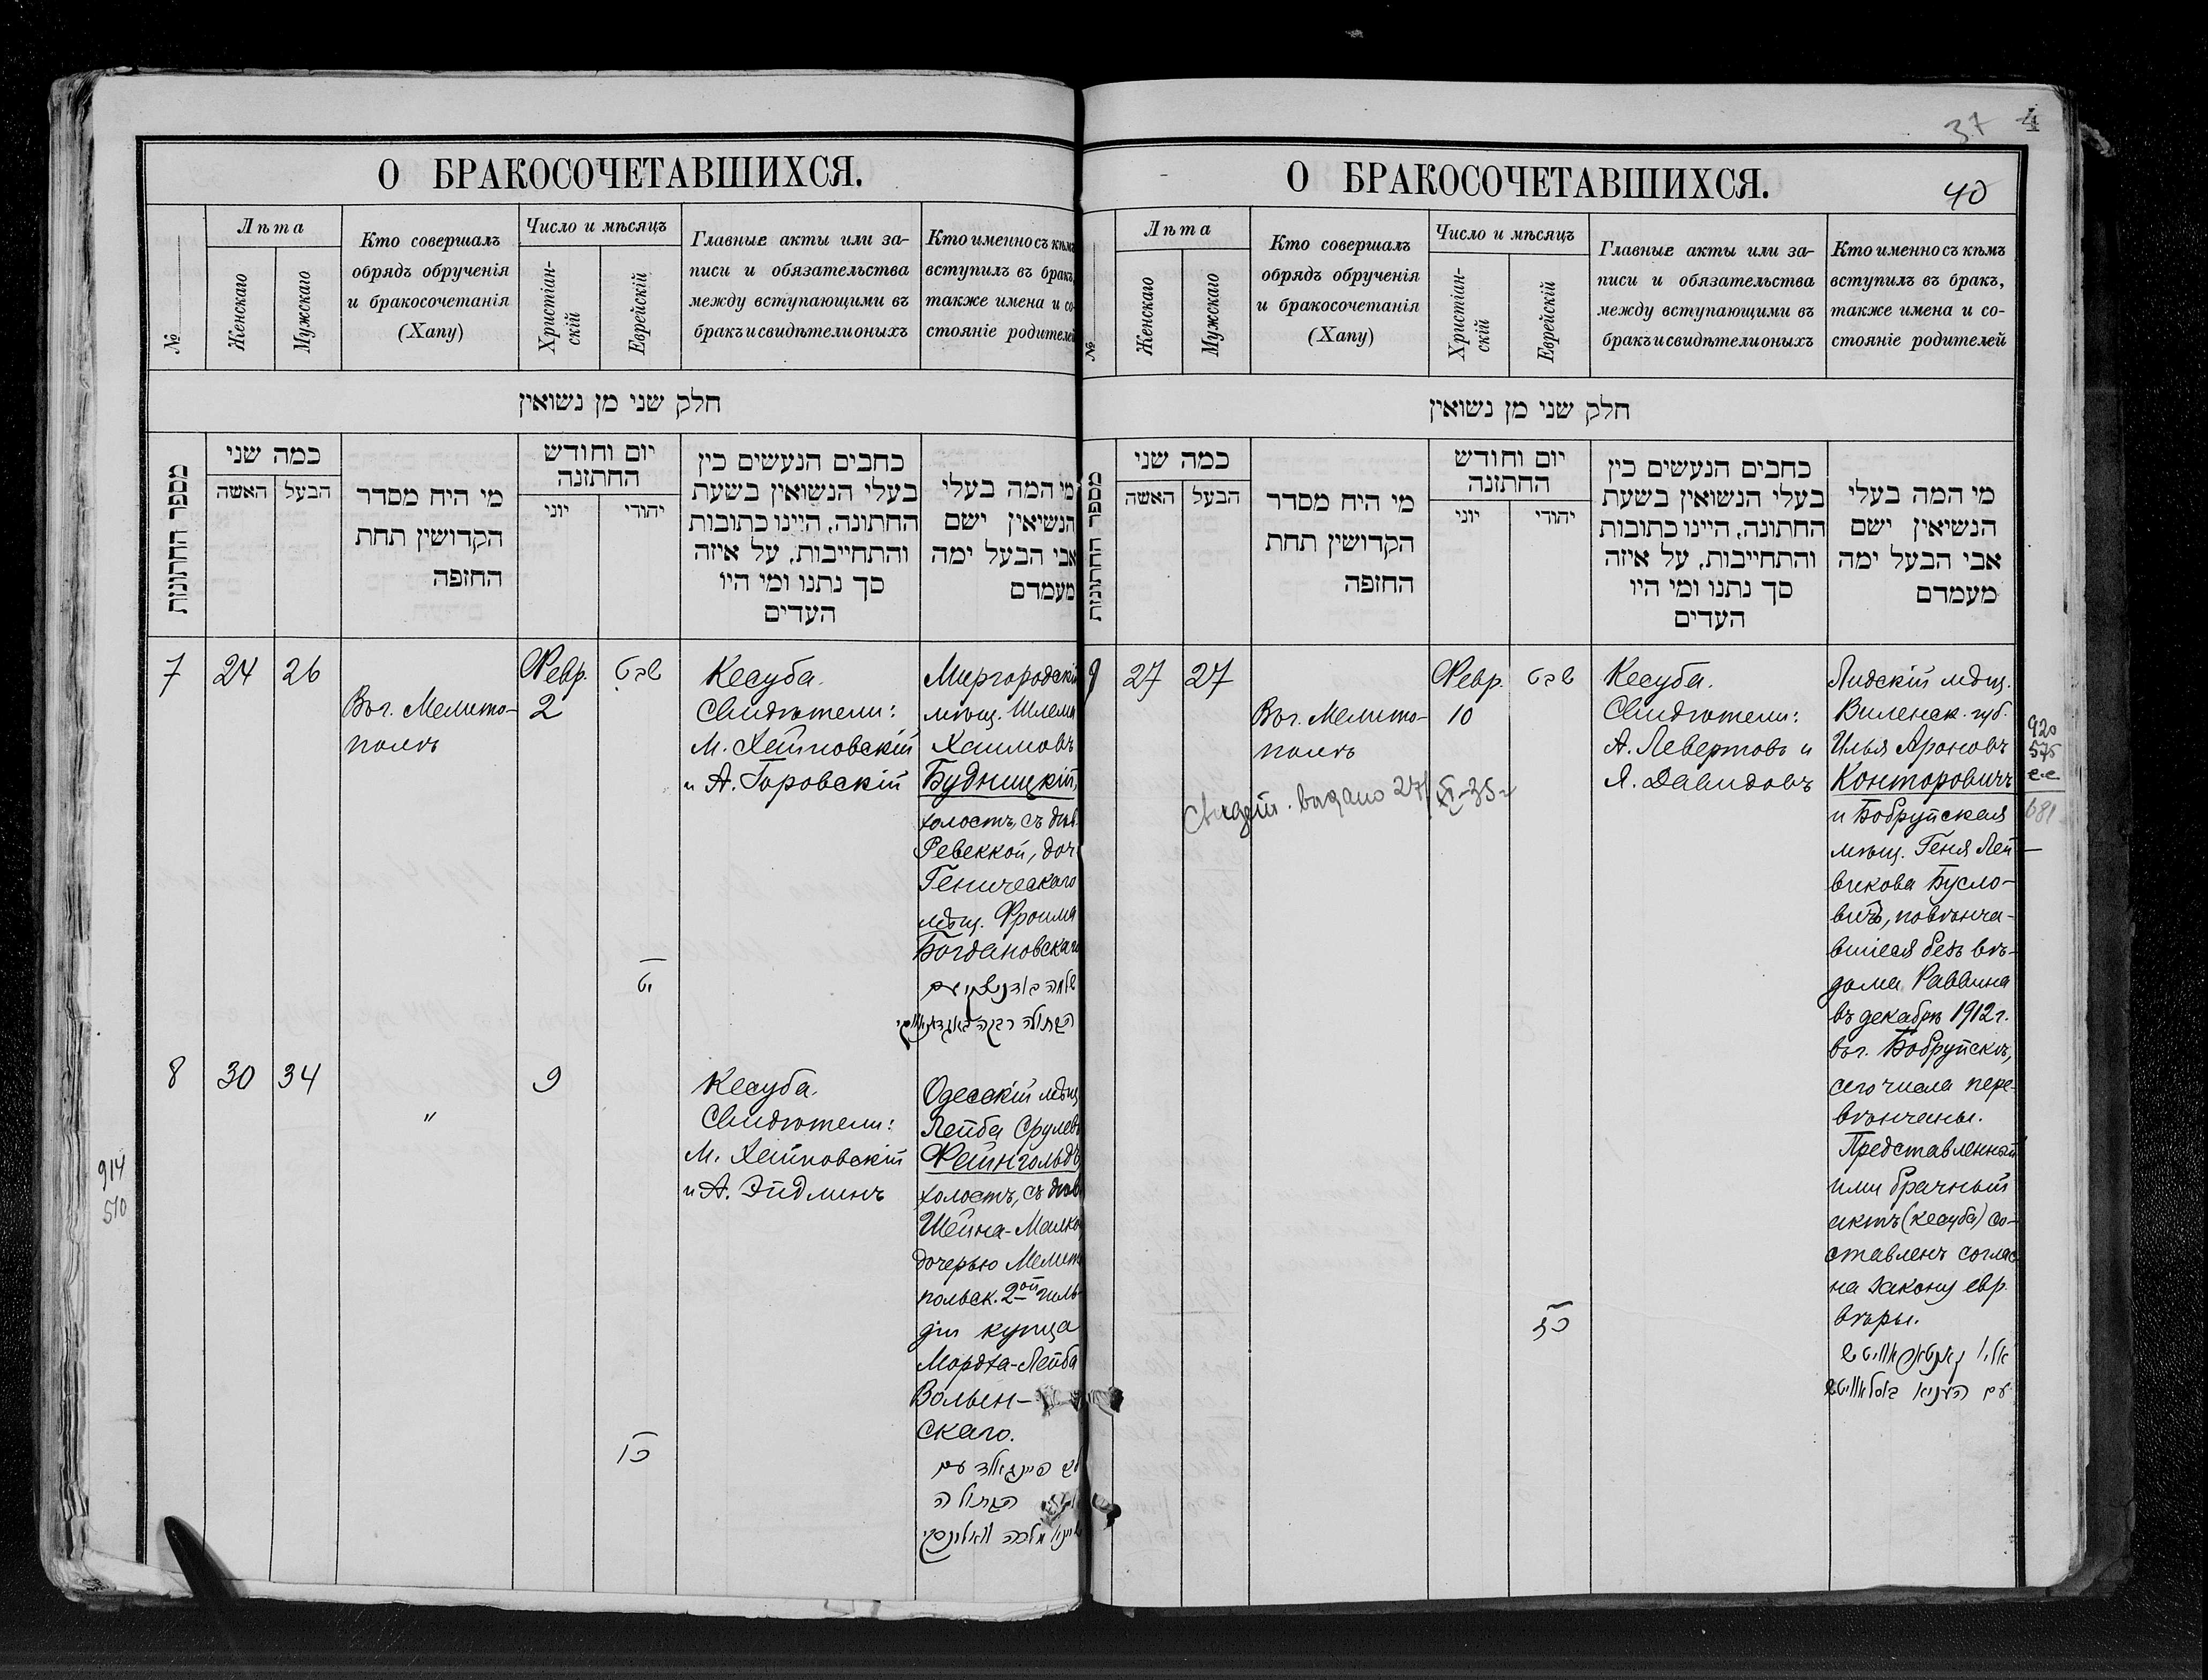 О БРАКОСОЧЕТАВШИХСЯ.
№
Лѣта
Женскаго
Мужскаго
Кто совершалъ
обрядъ обрученія
и бракосочетанія
(Хапу)
Число и мѣсяцъ
Христіан-
скій
Еврейскій
Главные акты или за-
писи и обязательства
между вступающими въ
бракъ и свидѣтели оныхъ
Кто именно съ кѣмъ
вступилъ въ бракъ,
также имена и со-
стояніе родителей
חלק שני מן נשואין
מספר החתונות
כמה שני
האשה
הבעל
מי היח מסדר
הקדושין תחת
החופה
יום וחודש
החתונה
יוני
יהודי
כחבים הנעשים כין
בעלי הנשואין בשעת
החתונה, היינו כתובות
והתחייבות, על איזה
סך נתנו ומי היו
העדים
מי המה בעלי
הנשיאין ישם
אבי הבעל ימה
מעמדם
7
24
26
Въ г. Мелито-
полѣ
Февр.
2
שבט
יט
Кесуба.
Свидѣтели:
М. Хейповскій
и А. Горовскій
Миргородскій
мѣщ. Шлема
Хаимовъ
Будницкій,
холостъ, съ дѣв.
Ревеккой, доч
Геническаго
мѣщ. Фроима
Богдановскаго
שלמה בודניצקי עם
הבתולה רבקה באגדאנאווסקי
8
30
34
"
9
כו
Кесуба.
Свидѣтели:
М. Хейповскій
и А. Эйдлинъ
Одесскій мѣщ
Лейба Срулевъ
Фейнгольдъ
холостъ, съ дѣв
Шейна-Малкой
дочерью Мелито
польск. 2ой гиль-
діи купца
Мордха-Лейба
Волын-
скаго.
פיינגאלד עם
הבתולה
שיינא מלכה וואלינסקי
914
510
37
4
О БРАКОСОЧЕТАВШИХСЯ.
40
№
Лѣта
Женскаго
Мужскаго
Кто совершалъ
обрядъ обрученія
и бракосочетанія
(Хапу)
Число и мѣсяцъ
Христіан-
скій
Еврейскій
Главные акты или за-
писи и обязательства
между вступающими въ
бракъ и свидѣтели оныхъ
Кто именно съ кѣмъ
вступилъ въ бракъ,
также имена и со-
стояніе родителей
חלק שני מן נשואין
מספר החתונות
כמה שני
האשה
הבעל
מי היח מסדר
הקדושין תחת
החופה
יום וחודש
החתונה
יוני
יהודי
כחבים הנעשים כין
בעלי הנשואין בשעת
החתונה, היינו כתובות
והתחייבות, על איזה
סך נתנו ומי היו
העדים
מי המה בעלי
הנשיאין ישם
אבי הבעל ימה
מעמדם
9
27
27
Въ г. Мелито-
полѣ
Свидѣт. видано 27/XI-35
Февр.
10
שבט
כז
Кесуба.
Свидѣтели:
А. Левертовъ и
Я. Давидовъ
Лидскій мѣщ.
Виленск. губ.
Илья Ароновъ
Конторовичъ
и Бобруйская
мѣщ. Геня Лей-
викова Бусло-
вичъ, повѣнча-
вшіеся безъ вѣ-
дома Раввина
въ декабрѣ 1912 г.
въ г. Бобруйскѣ,
сего числа пере-
вѣнчаны.
Представленный
ими брачный
актъ (кесуба) со-
ставленъ соглас
на закону евр.
вѣры.
אליו קאנטאראוויטש
עם העניא בוסלאוויטש
920
575
681